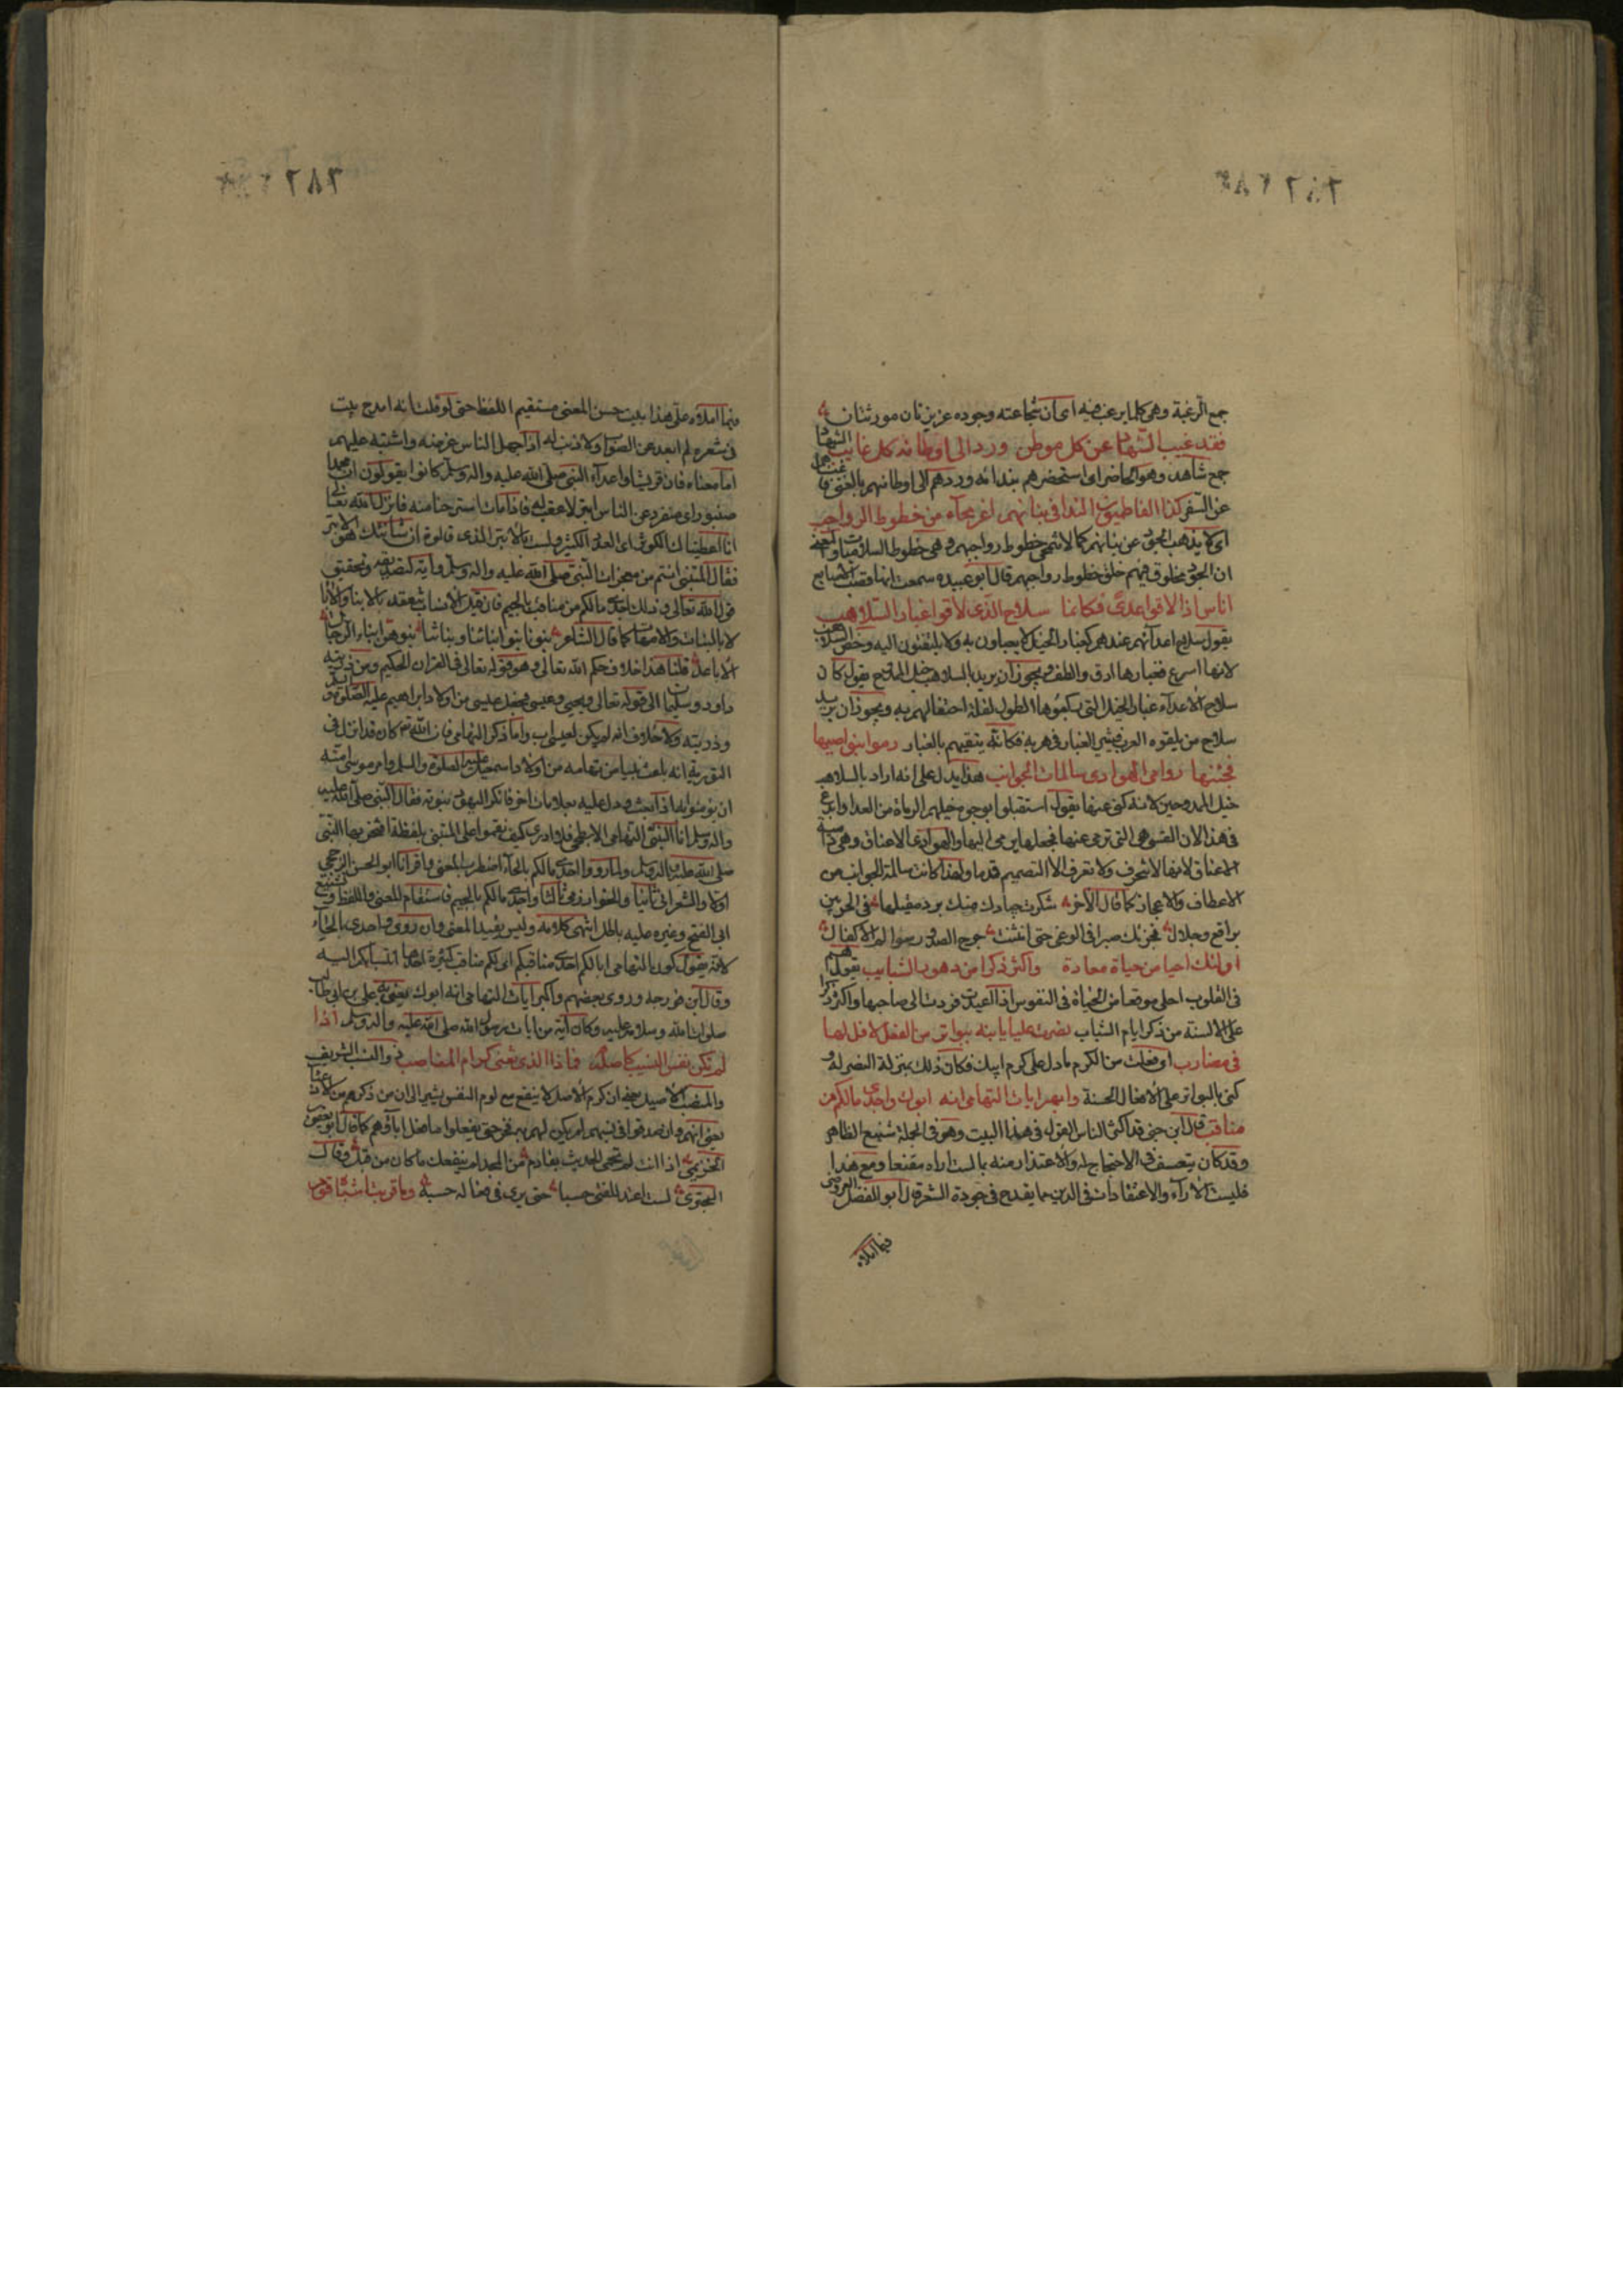 جمع الرغبة وهى كلما يرغب فيه اى ان شجاعته وجوده عزيزتان مورثتان
فقد غيب الشهاد عن كل موطن ورد الى اوطانه كل غايب الشهاد
جمع شاهد وهو الحاضر اى استحضرهم بندائه وردهم الى اوطانهم بالغنى
عن السفر كذا الفاطميون الندا فى بنانهم اعز امحاء من خطوط الرواجب
اى لا يذهب الجود عن بنانهم كما لا تنمحى خطوط رواجبهم وهى خطوط السلاميات والمعنى
ان الجود مخلوق فيهم خلق خطوط رواجبهم قال ابو عبيدة سمعت انها قصب الاصابع
اناس اذا لاقوا عدى فكانما سلاح الذى لاقوا غبار السلاهب
يقول سلاح اعدائهم عندهم كغبار الخيل لا يعباون به ولا يلتفتون اليه وخص السلاهب
لانها اسرع فغبارها ادق والطف ويجوز ان يريد بالسلاهب خيل الممدوح يقول كان
سلاح الاعداء غبار الخيل التى ركبوها لقلة احتفالهم به ويجوز ان يريد
سلاح من يلقوه الهرب فيثير الغبار فى هربه فكانه يتقيهم بالغبار رموا بنواصيها
فجئنها دوامى الهوادى سالمات الجوانب هذا يدل على انه اراد بالسلاهب
خيل الممدوحين لانه كنى عنها يقول استقبلوا بوجوه خيلهم الرماة من العدا
فى هذا لان القسى هى التى ترمى عنها فجعلها يرمى اليها والهوادى الاعناق وهى دامية
الاعناق لانها لا تنحرف ولا تعرف الا التصميم قدما ولهذا كانت سالمة الجوانب من
الاعطاف والاعجاز كما قال الاخر شكرت جيادك منك برد مقيلها فى الحر بين
براقع وجلال فجزتك صبرا فى الوغى حتى انثنت جرح الصدور سوالم الاكفال
اولئك احلى من حياة معادة واكثر ذكرا من دهور الشبايب يقول هم
فى القلوب احلى موقعا من الحياة فى النفوس اذا اعيدت فردت الى صاحبها واكثر ذكرا
على الالسنة من ذكر ايام الشباب نصرت عليا يا ابنه ببواتر من الفعل لا فل لها
فى مضارب اى فعلت من الكرم ما دل على كرم ابيك فكان ذلك بمنزلة النصر له و
كنى بالبواتر على الافعال الحسنة وابهر ايات التهامى انه ابوك واحدى مالكم من
مناقب قال ابن جنى قد اكثر الناس القول فى هذا البيت وهو فى الجملة شنيع الظاهر
وقد كان يتعسف فى الاحتجاج له والاعتذار منه بما لست اراه مقنعا ومع هذا
فليست الاراء والاعتقادات فى الدين مما يقدح فى جودة الشعر قال ابو الفضل العروضى
فيما املاه
فيما املاه على هذا بيت حسن المعنى مستقيم اللفظ حتى لو قلت انه امدح بيت
فى شعره لم ابعد عن الصواب ولا ذنب له اذا جهل الناس غرضه واشتبه عليهم
اما معناه فان قريشا واعداء النبى صلى الله عليه واله وسلم كانوا يقولون ان محمدا
صنبور اى منفرد عن الناس ابتر لا عقب له فاذا مات استرحنا منه فانزل الله تعالى
انا اعطيناك الكوثر اى العدد الكثير ولست بالابتر الذى قالوه ان شانئك هو الابتر
فقال المتنبى انتم من معجزات النبى صلى الله عليه واله وسلم واية لتصديقه وتحقيق
قول الله تعالى وذلك احدى مالكم من مناقب بالجيم فان قيل الانساب تنعقد بالابنا والابا
لا بالبنات والامهات كما قال الشاعر بنونا بنوا ابنائنا وبناتنا بنوهن ابناء الرجال
الاباعد قلنا هذا خلاف حكم الله تعالى وهو قوله تعالى فى القران الحكيم ومن ذريته
داود وسليمان الى قوله تعالى ويحيى وعيسى فجعل عيسى من اولاد ابراهيم عليه الصلوة
وذريته ولا خلاف انه لم يكن لعيسى اب واما ذكر التهامى فان الله تعم كان قد انزل فى
التورية انه باعث نبيا من تهامه من اولاد اسمعيل عليه الصلوة والسلم وامر موسى امته
ان يؤمنوا به اذا بعث ودل عليه بعلامات اخر فانكر اليهود نبوته فقال النبى صلى الله عليه
واله وسلم انا النبى التهامى الابطحى فلا ادرى كيف نقموا على المتنبى بلفظة افتخر بها النبى
صلى الله عليه واله وسلم ولما رووا احدى مالكم بالحاء اضطرب المعنى واقرانا ابو الحسن الرخجى
اولا والشعرانى ثانيا والخوارزمى ثالثا واجدى مالكم بالجيم فاستقام المعنى واللفظ وتشنيع
ابى الفتح وغيره عليه باطل انتهى كلامه وليس يفيد المعنى وان روى واحدى بالحاء
لانه يقول كون التهامى ابا لكم احدى مناقبكم اى لكم مناقب كثيرة احدها انتسابكم اليه
وقال ابن فورجه وروى بعضهم واكبر ايات التهامى انه ابوك يعنى به على بن ابى طالب
صلوات الله وسلامه عليه وكان اية من ايات رسول الله صلى الله عليه واله وسلم اذا
لم تكن نفس النسيب كاصله فماذا الذى تغنى كرام المناصب ذو النسب الشريف
والمنصب الاصيل يعنى ان كرم الاصل لا ينفع مع لوم النفس يشير الى ان من ذكرهم من الادعيا
يعنى انهم وان صدقوا فى نسبهم لم يكن لهم به فخر حتى يفعلوا ما فعل اباؤهم كما قال ابو يعقوب
الخزيمى اذا انت لم تحمى الحديث بقادم من المجد لم ينفعك ما كان من قبل وقال
البحترى لست اعتد للفتى حسبا حتى يرى فى فعاله حسبه وما قربت اشباه قوم